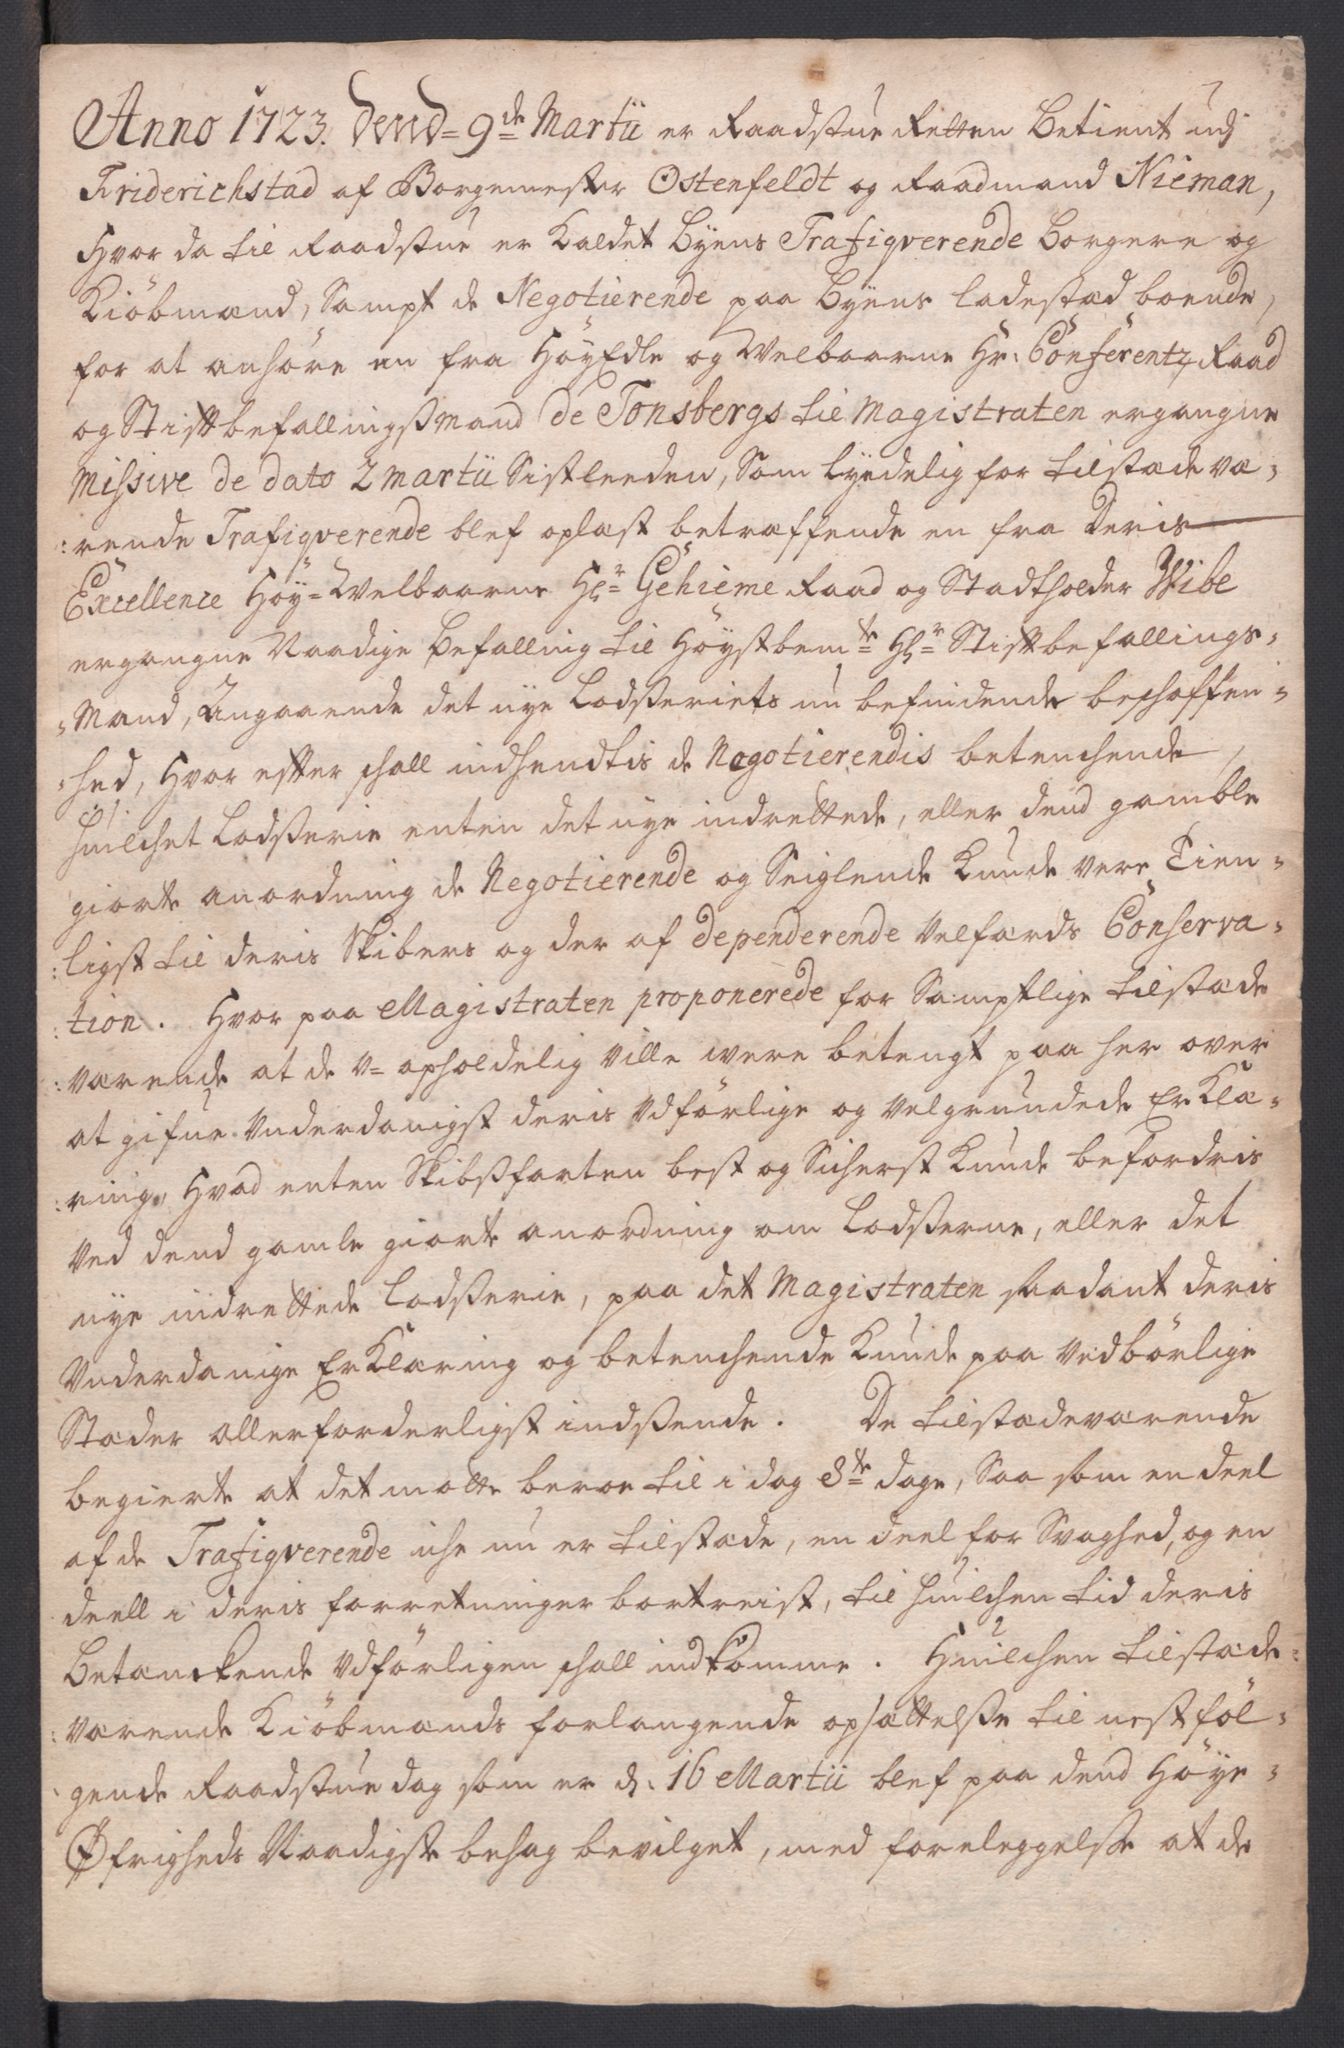 Anno 1723. dend = 9de Martii er Raadstue Retten betient udj
Friderichstad af Borgemester Ostenfeldt og Raadmand Nieman,
Hvor da til Raadstue er kaldet byens Trafiqverende borgere og
Kiöbmænd, Sampt de Negotierende paa byens ladestæd boende,
for at anhöre en fra HöyEdle og Welbaarne Hr: Conferentz Raad
og Stiftbefallingsmand de Tonsbergs til Magistraten ergangne
Missive de dato 2 martii Sistleeden, Som lydelig for tilstæde væ-
:rende Trafiqverende blef oplæst betræffende en fra Deris
Excellence Höy= Welbaarne Hr= Gehieme Raad og Stadtholder Wibe
ergangne Naadige befalling til Höystbemte Hr= Stiftbefallings-
-Mand, Angaaende det nye Lodsseriets nu befindende beschaffen-
-hed, Hvor efter schall indhendtis de Negotierendis betenchende,
huilchet Lodsserie enten det nye indrettede, eller dend gamble
giorte anordning de Negotierende og Seiglende kunde vere Tien-
:ligst til deris Skibers og der af dependerende velfærds Conserva-
:tion. Hvor paa Magistraten proponerede for Samptlige tilstæde
:værende at de v= opholdelig ville were betengt paa her over
at gifue Vnderdanigst deris Vdförlige og velgrundede ErKlæ-
:ring, Hvad enten Skibsfarten best og Sicherst kunde befordris
ved dend gamle giorte anordning om Lodsserne, eller det
nye indrettede Lodsserie, paa det Magistraten saadant deris
Vnderdanige ErKlæring og betenchende kunde paa vedbörlige
Stæder allerforderligst indsende. De tilstædeværende
begierte at det motte beroe til i dag 8te dage, Saa som en deel
af de Trafiqverende iche nu er tilstæde, en deel for Svaghed, og en
deell i deris forretninger bortreist, til huilchen tid deris
Betænckende Vdförligen schall indkomme. Huilchen tilstæde-
:værende Kiöbmænds forlangende opsættelse til nestföl-
:gende Raadstue dag som er d: 16 Martii blef paa dend Höye-
Öfrigheds Naadigste behag bevilget, med foreleggelse at de